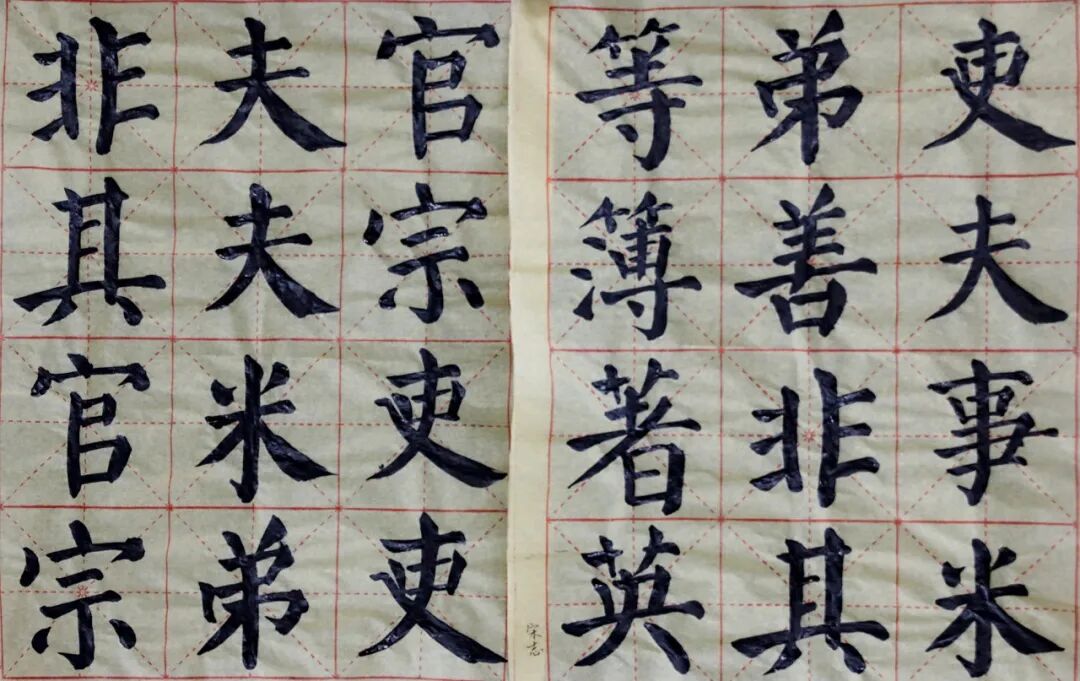 吏夫事米
弟善非其
等簿著英
宋志
官宗吏吏
夫夫米弟
非其官宗